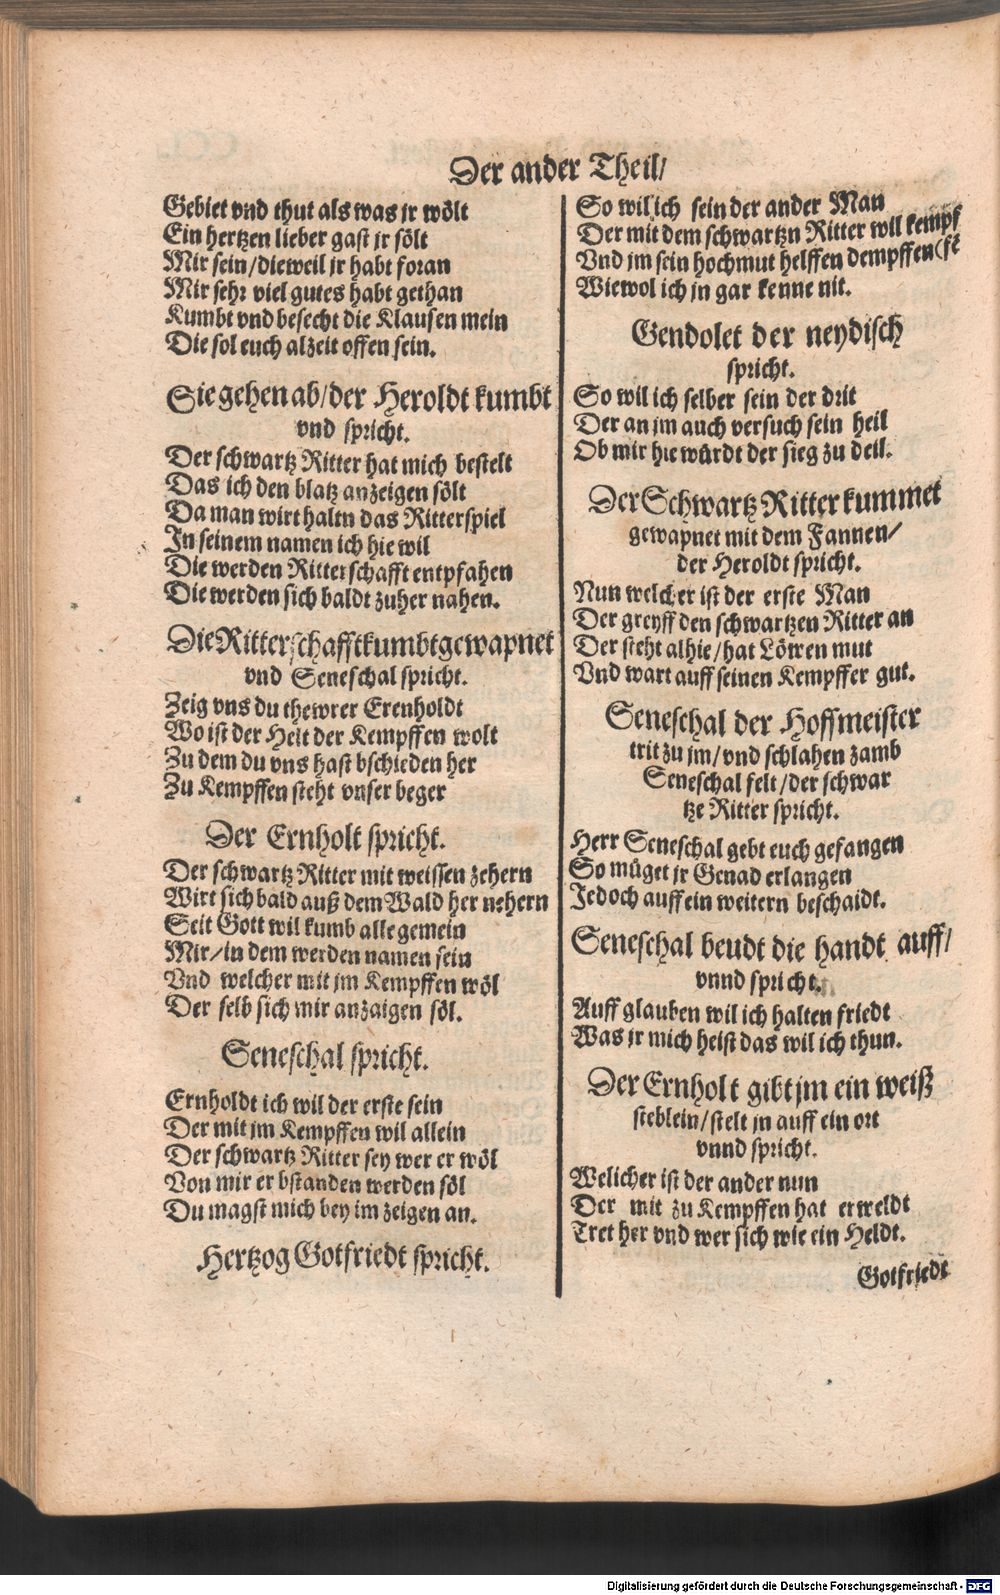 Der ander Theil/
Gebiet vnd thut als was jr wölt
Ein hertzen lieber gast jr sölt
Mir sein/dieweil jr habt foran
Mir sehr viel gutes habt gethan
Kumbt vnd besecht die Klausen mein
Die sol euch alzeit offen sein.
Sie gehen ab/der Heroldt kumbt
vnd spricht.
Der schwartz Ritter hat mich bestelt
Das ich den blatz anzeigen sölt
Da man wirt haltn das Ritterspiel
In seinem namen ich hie wil
Die werden Ritterschafft entpfahen
Die werden sich baldt zuher nahen.
Die Ritterschafft kumbt gewapnet
vnd Seneschal spricht.
Zeig vns du thewrer Erenholdt
Wo ist der Helt der Kempffen wolt
Zu dem du vns hast bschieden her
Zu Kempffen steht vnser beger
Der Ernholt spricht.
Der schwartz Ritter mit weissen zehern
Wirt sich bald auß dem Wald her nehern
Seit Gott wil kumb alle gemein
Mir/in dem werden namen sein
Vnd welcher mit jm Kempffen wöl
Der selb sich mir anzaigen söl.
Seneschal spricht.
Ernholdt ich wil der erste sein
Der mit jm Kempffen wil allein
Der schwartz Ritter sey wer er wöl
Von mir er bstanden werden söl
Du magst mich bey im zeigen an.
Hertzog Gotfriedt spricht.
So wil ich sein der ander Man
Der mit dem schwartzn Ritter wil kempf
Vnd jm sein hochmut helffen dempffen (fē
Wiewol ich jn gar kenne nit.
Gendolet der neydisch
spricht.
So wil ich selber sein der drit
Der an jm auch versuch sein heil
Ob mir hie würdt der sieg zu deil.
Der Schwartz Ritter kummet
gewapnet mit dem Fannen/
der Heroldt spricht.
Nun welcher ist der erste Man
Der greyff den schwartzen Ritter an
Der steht alhie/hat Löwen mut
Vnd wart auff seinen Kempffer gut.
Seneschal der Hoffmeister
trit zu jm/vnd schlahen zamb
Seneschal felt/der schwar
tze Ritter spricht.
Herr Seneschal gebt euch gefangen
So müget jr Genad erlangen
Jedoch auff ein weitern beschaidt.
Seneschal beudt die handt auff/
vnnd spricht.
Auff glauben wil ich halten friedt
Was jr mich heist das wil ich thun.
Der Ernholt gibt jm ein weiß
steblein/stelt jn auff ein ort
vnnd spricht.
Welicher ist der ander nun
Der mit zu Kempffen hat erweldt
Tret her vnd wer sich wie ein Heldt.
Gotfriedt
Digitalisierung gefördert durch die Deutsche Forschungsgemeinschaft - DFG